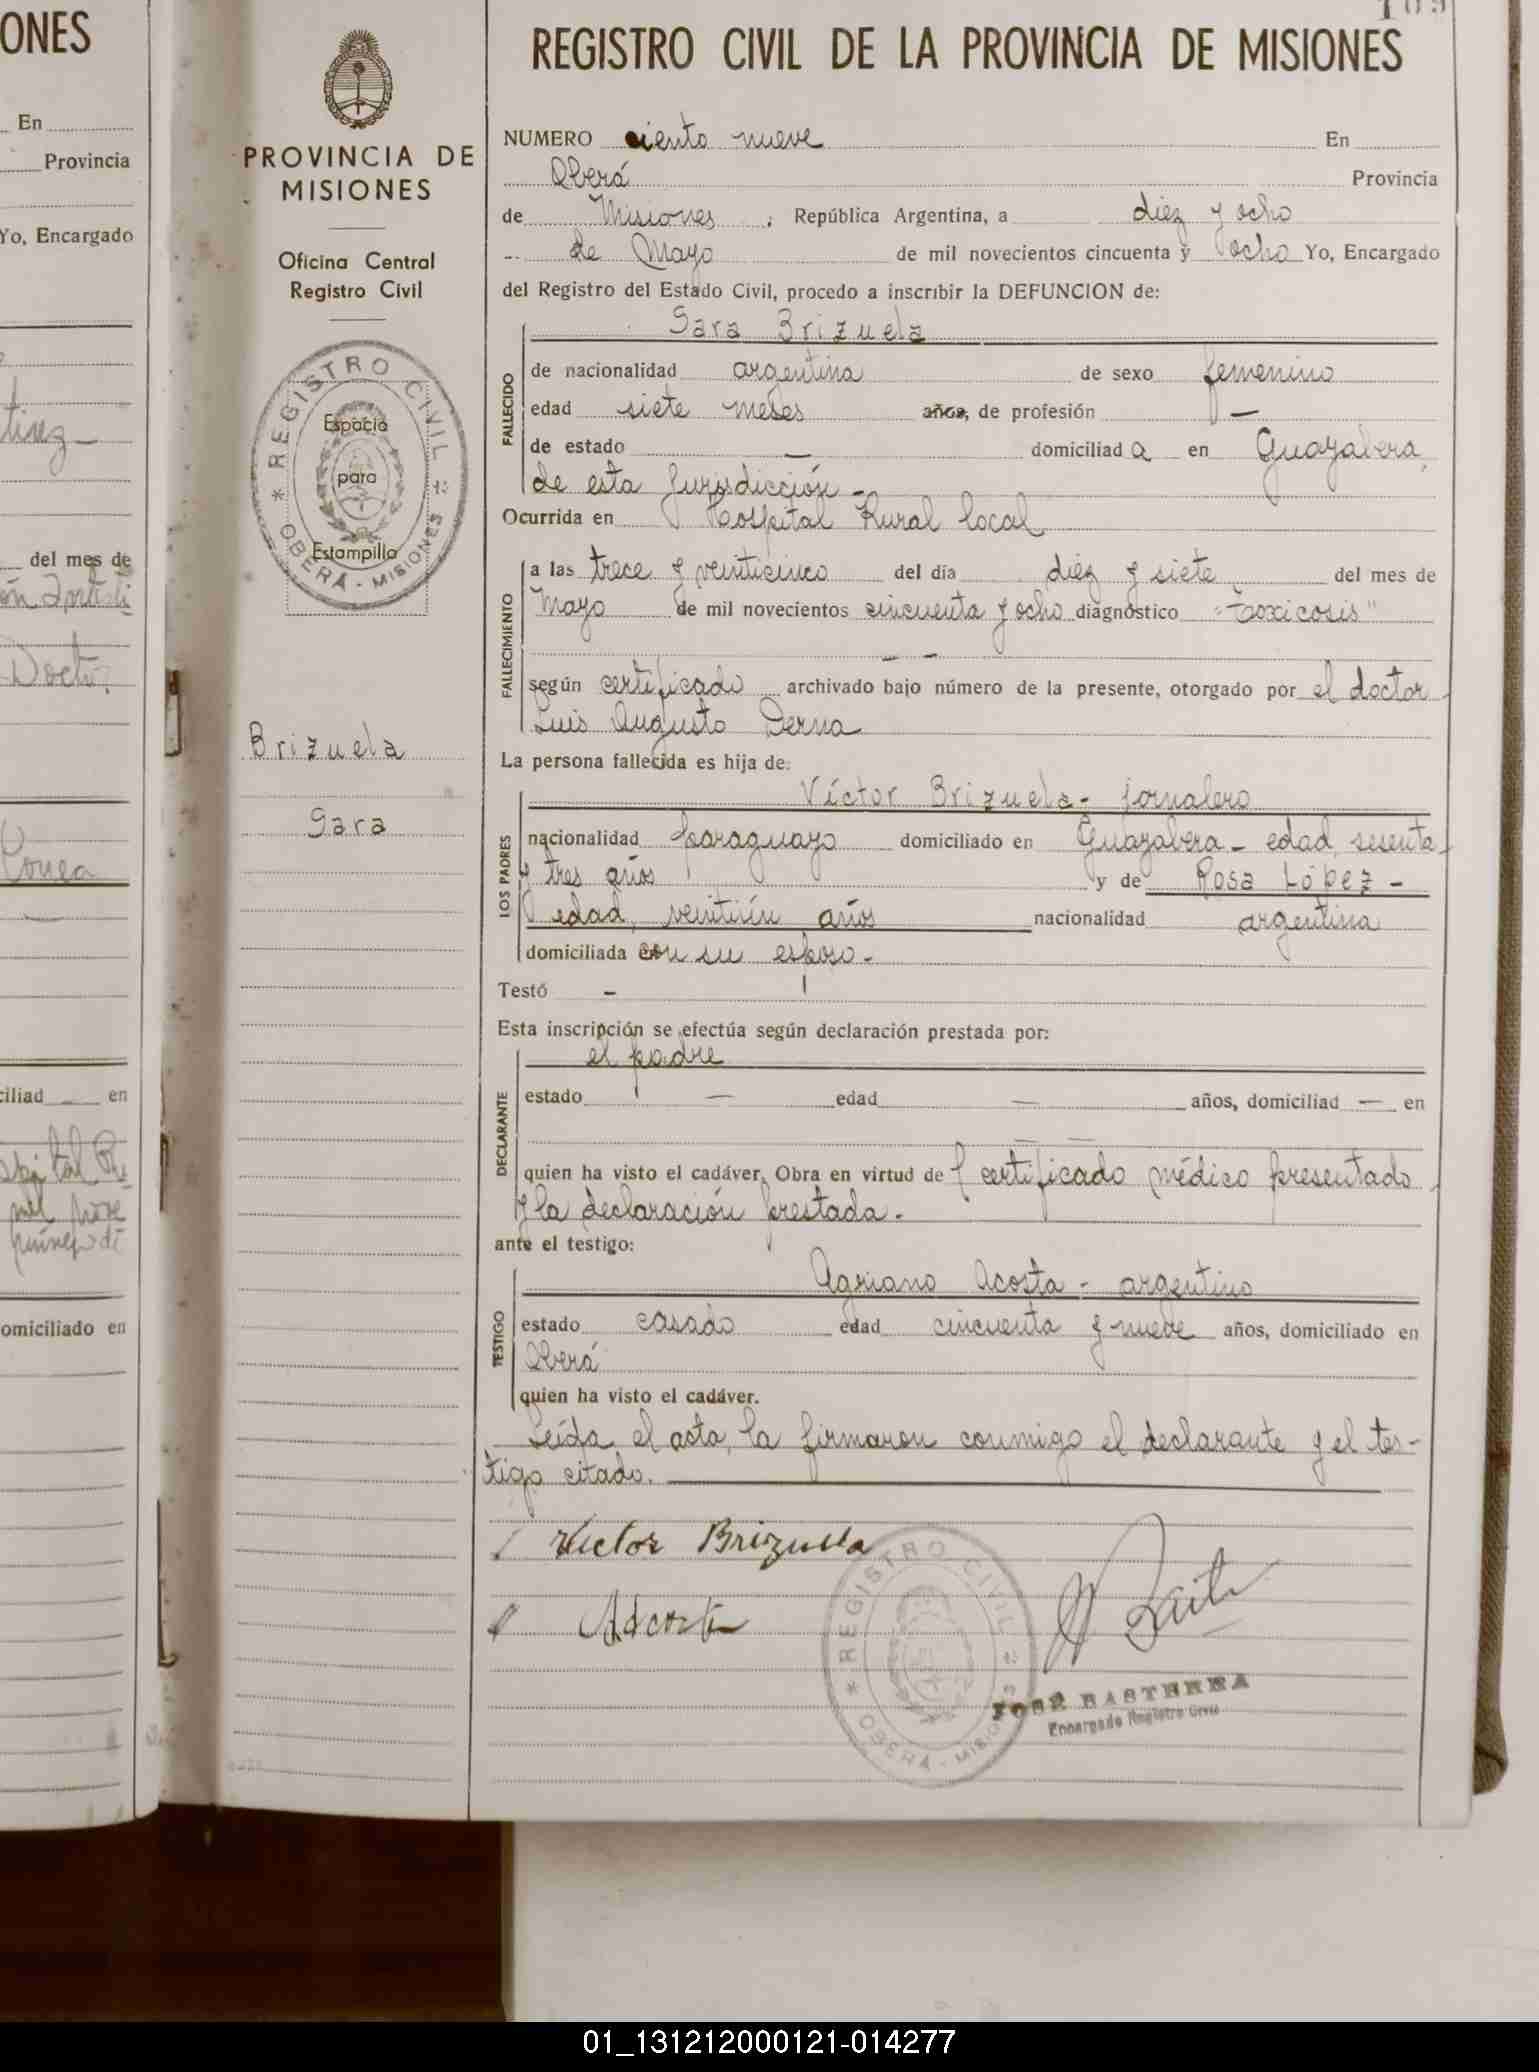 ONES
En
Provincia
Yo, Encargado
del mes de
Doctr.
Correa
ciliad — en
omiciliado en
PROVINCIA DE
MISIONES
Oficina Central
Registro Civil
* REGISTRO CIVIL * OBERÁ - MISIONES
Espacio
para
Estampilla
Brizuela
Sara
109
REGISTRO CIVIL DE LA PROVINCIA DE MISIONES
NUMERO ciento nueve En
Oberá Provincia
de Misiones, República Argentina, a diez y ocho
de Mayo de mil novecientos cincuenta y ocho Yo, Encargado
del Registro del Estado Civil, procedo a inscribir la DEFUNCION de:
Sara Brizuela
FALLECIDO
de nacionalidad argentina de sexo femenino
edad siete meses años, de profesión —
de estado — domiciliada en Guayabera,
de esta Jurisdicción -
Ocurrida en Hospital Rural local
FALLECIMIENTO
a las trece y veinticinco del día diez y siete del mes de
Mayo de mil novecientos cincuenta y ocho diagnóstico "Toxicosis"
— —
según certificado archivado bajo número de la presente, otorgado por el doctor
Luis Augusto Derna
La persona fallecida es hija de:
LOS PADRES
Víctor Brizuela - jornalero
nacionalidad paraguayo domiciliado en Guayabera - edad, sesenta
y tres años y de Rosa López -
edad, veintiún años nacionalidad argentina
domiciliada con su esposo -
Testó -
Esta inscripción se efectúa según declaración prestada por:
DECLARANTE
el padre
estado — edad — años, domiciliad — en
— —
quien ha visto el cadáver, Obra en virtud de certificado médico presentado
y la declaración prestada.
ante el testigo:
TESTIGO
Agriano Acosta - argentino
estado casado edad cincuenta y nueve años, domiciliado en
Oberá
quien ha visto el cadáver.
Leída el acta, la firmaron conmigo el declarante y el tes-
tigo citado.
Victor Brizuela
AAcosta
* REGISTRO CIVIL * OBERÁ - MISIONES
JOSÉ BASTERRA
Encargado Registro Civil
01_131212000121-014277